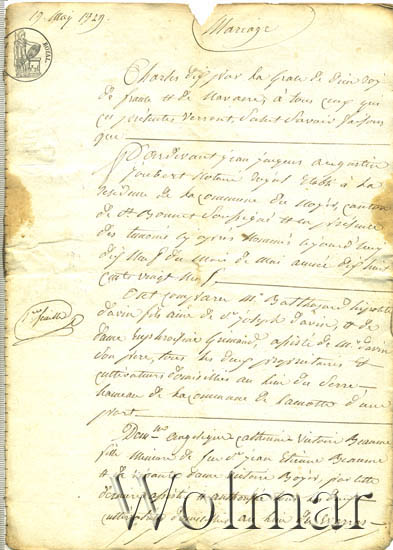 19 Mai 1829.
Mariage
ROYAL
Charles dix par la grace de dieu roi
de france et de Navarre, a tous ceux qui
ces présentes verront, Salut Savoir faisons
que
Pardevant jean jacques augustin
joubert Notaire royal à la
résidence de la commune du Noyer, canton
de St Bonnet Soussigné et en présence
des temoins cy après Nommés aujourd'huy
dix Neuf du mois de mai année dix huit
cents vingt Neuf,
Est comparu Mr Balthazard hipolite
davin fils ainé de Sr joseph davin, et de
dame Euphrosine assisté de Mr davin
Son père, tous les deux propriétaires et
cultivateurs domiciliés au lieu du Serre
hameau de la commune de lamotte d'une
part
1re feuille
Demlle angelique catherine Victoire Beaume
fille Mineure de feu Sr jean Etienne Beaume
et de vivante dame Victoire Boyer, par cette
dernière
cultivateur au lieu
Wolmar